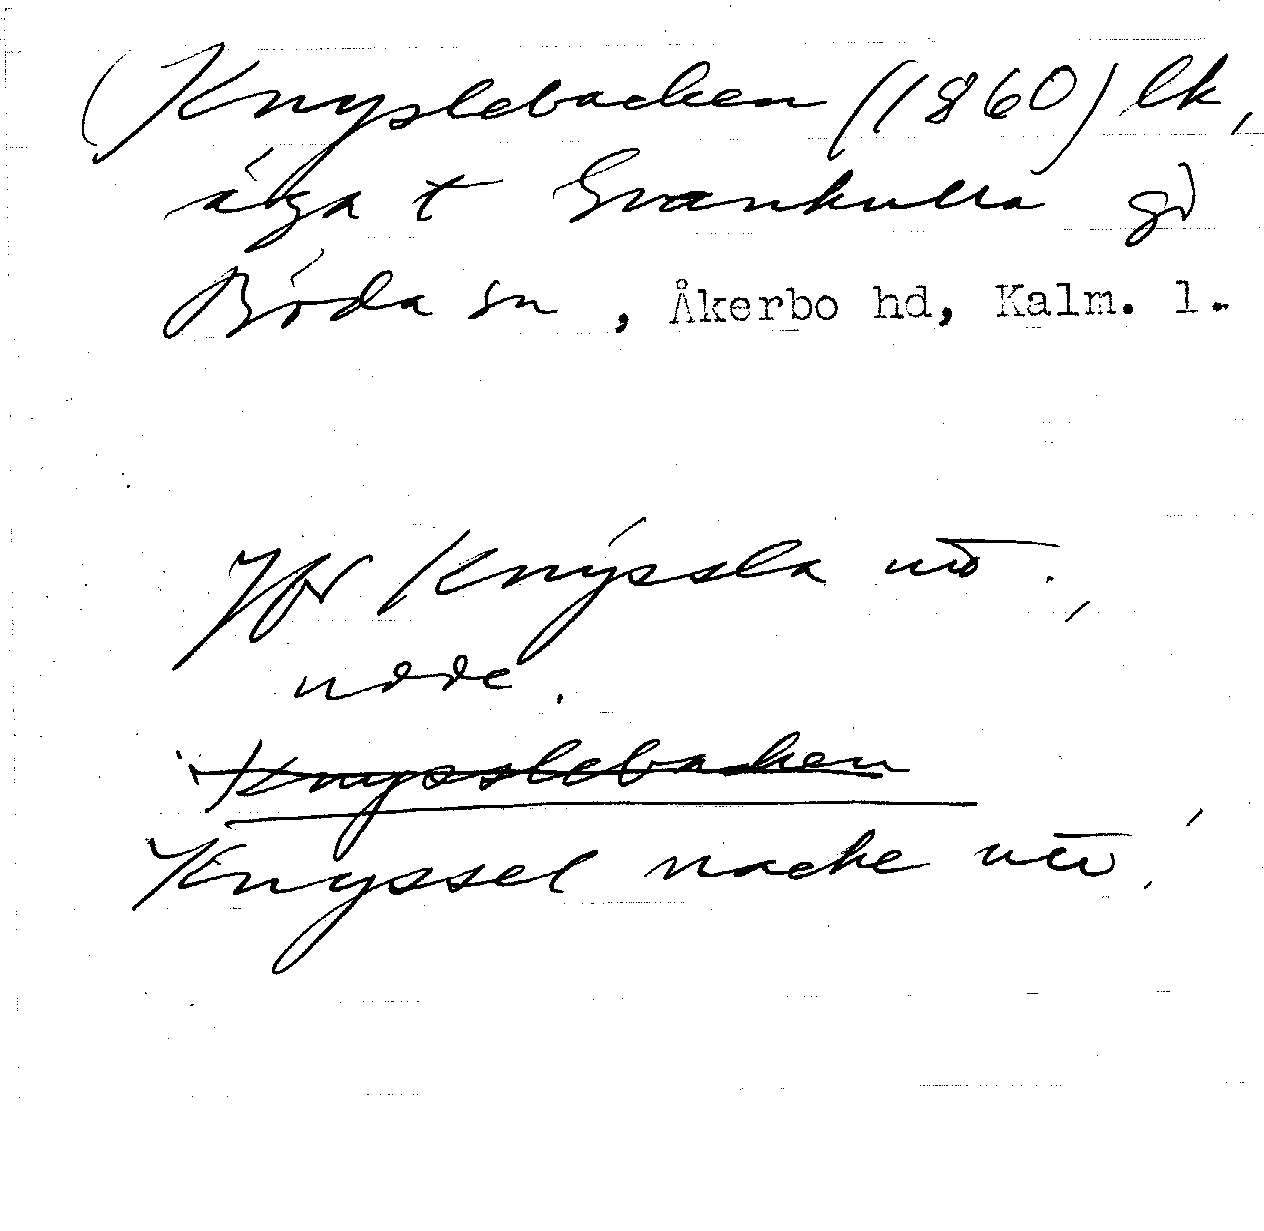 (Knyslebacken (1860) lk,
äga t Svankulla gd
Böda sn, Åkerbo hd, Kalm. l.
Jfr Knyssla
Knysslebacken
Knyssel nacke